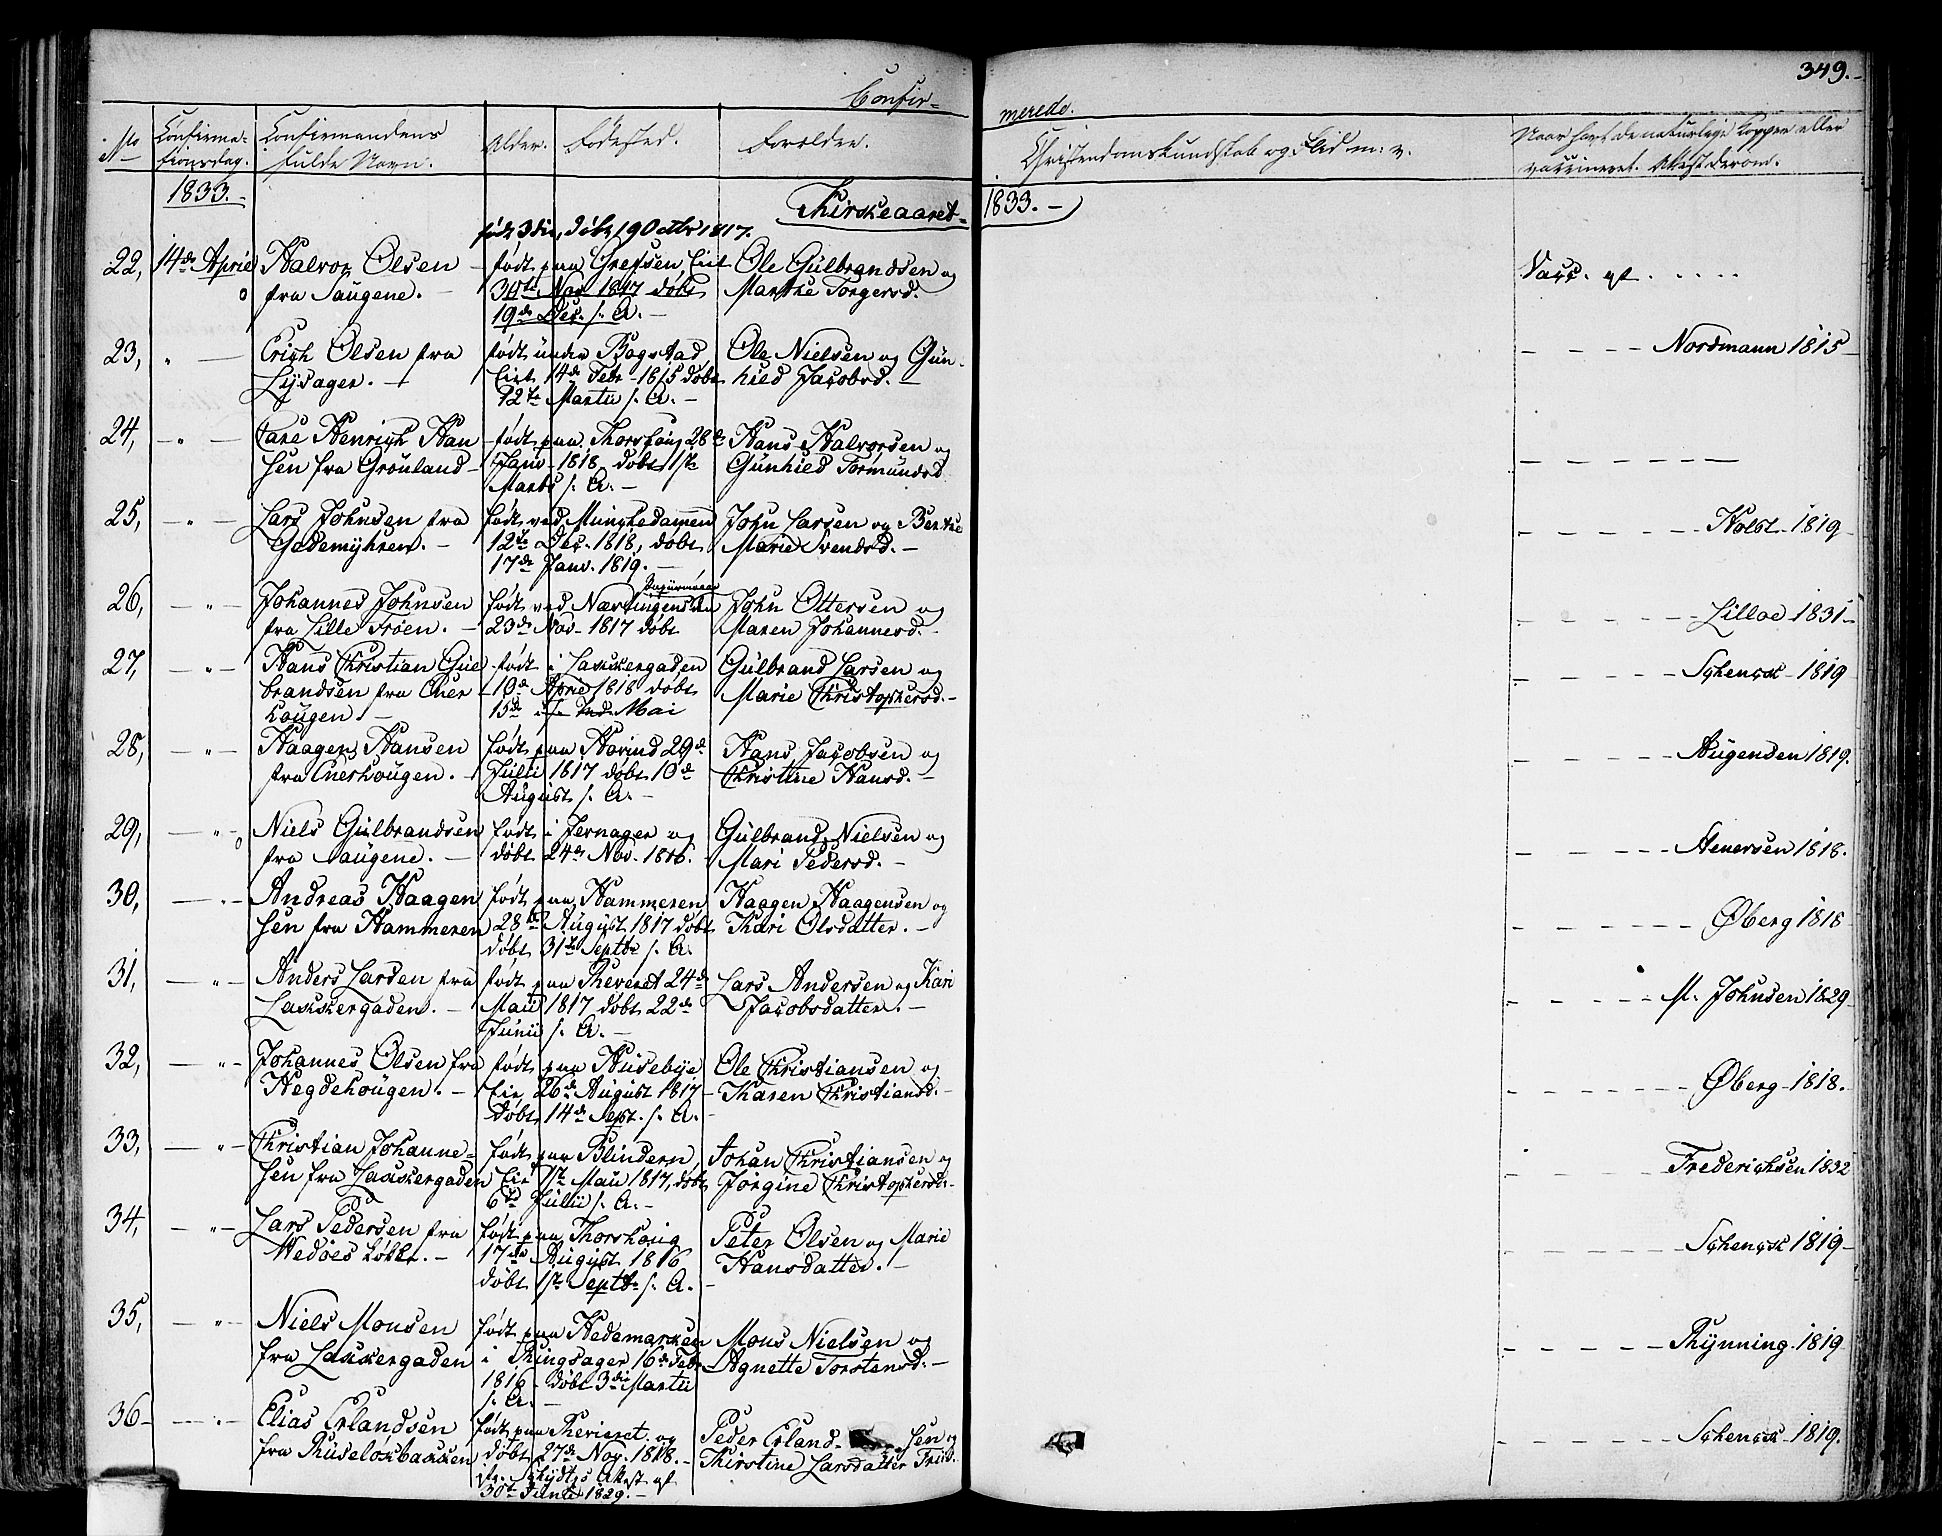 349.
Confir-
merede.
No
Confirma-
tionsdag.
Confirmandens
fulde Navn.
Alder. Födested.
Forældre.
Christendomskundskab og Flid m: v.
Naar havt de naturlige Kopper eller
vaccineret. Attest derom.
1833.-
Kirkeaaret- 1833.-
född 3die, döbt 19 Octbr 1817.
22, 14de April Halvor Olsen
fra Saugene.-
födt paa Grefsen Eiet
30te Nov 1817 döbt
19de Dec. s. A.-
Ole Gulbrandsen og
Marthe Torgersd.
Vacc. af . . . . .
23, " — Erich Olsen fra
Lysager.-
födt under Bogstad
Eiet 14de Febr-1815 döbt
12te Martii s. A.-
Ole Nielsen og Gun-
hild Jacobsd.-
— — — Nordmann 1815-
24, — " — Carl Henrich Han
sen fra Grönland-
födt paa Thorshoug 28de
Janv-1818 döbt 1ste
Marts s. A.-
Hans Halvorsen og
Gunhild Tormundsd
— — — — — —
25, — " — Lars Johnsen fra
Gademyhren.-
födt ved Munchedamen
12te Dec. 1818, döbt
17de Janv. 1819.-
John Larsen og Berthe
Marie Svendsd.-
— — — Holst 1819-
26, — " — Johannes Johnsen
fra Lille Fröen.-
födt ved Nærtingensdn
Papiirmölle
23de Nov-1817 döbt
John Ottersen og
Maren Johannesd.-
— — — Lilloe 1831-
27, — " — Hans Christian Gul
brandsen fra Ener
hougen.-
födt i Lakkergaden
10de April 1818 döbt
15de Mai
Gulbrand Larsen og
Marie Christophersd.-
— — — Schenck 1819
28, — " — Haagen Hansen
fra Enerhougen.-
födt paa Hovind 29de
Julii 1817 döbt 10de
August s. A.-
Hans Jacobsen og
Christine Hansd.-
— — — Augensen 1819.
29, — " — Niels Gulbrandsen
fra Saugene.-
födt i Jernager og
döbt 24de Nov. 1816.
Gulbrand Nielsen og
Mari Pedersd.-
— — — Stenersen 1818.
30, — " — Andreas Haagen
sen fra Hammeren
födt paa Hammeren
28de August 1817 döbt
döbt 31te Septbr s. A.
Haagen Haagensen og
Kari Olsdatter.-
— — — Øberg 1818
31, — " — Anders Larsen fra
Lakkergaden.-
födt paa Theveret 24de
Maii 1817 döbt 22de
Junii s. A.-
Lars Andersen og Kari
Jacobsdatter.-
— — — M. Johnsen 1829-
32, — " — Johannes Olsen fra
Hegdehougen.-
födt paa Husebye
Eie 26de August 1817
döbt 14de Sept. s. A.-
Ole Christiansen og
Karen Christiansd.-
— — — Øberg-1818.
33, — " — Christian Johanne-
sen fra Lakkergaden
födt paa Blindern
Eie 1ste Maii 1817, döbt
6te Julii s. A.-
Johan Christiansen og
Jörgine Christophersd.-
— — — Frederichsen 1832
34, — " — Lars Pedersen fra
Wedöes Lökke.-
födt paa Thorshoug
17de August 1816
döbt 1ste Septbr s. A.-
Peter Olsen og Marie
Hansdatter.-
— — — Schenck 1819-
35, — " — Niels Monsen
fra Lakkergaden
födt paa Hedemarken
i Ringsager 16de Febr
1816 döbt 3die Martii
s. A.-
Mons Nielsen og
Agnette Torstensd.-
— — — Thynning 1819
36- — " — Elias Erlandsen
fra Ruselökbakken
födt paa Thevieret og
döbt 27de Nov. 1818.-
. Schydtz Attest af
30te Junii 1829.-
Peder Erland- sen og
Kirstine Larsdatter
— — — Schenck 1819.